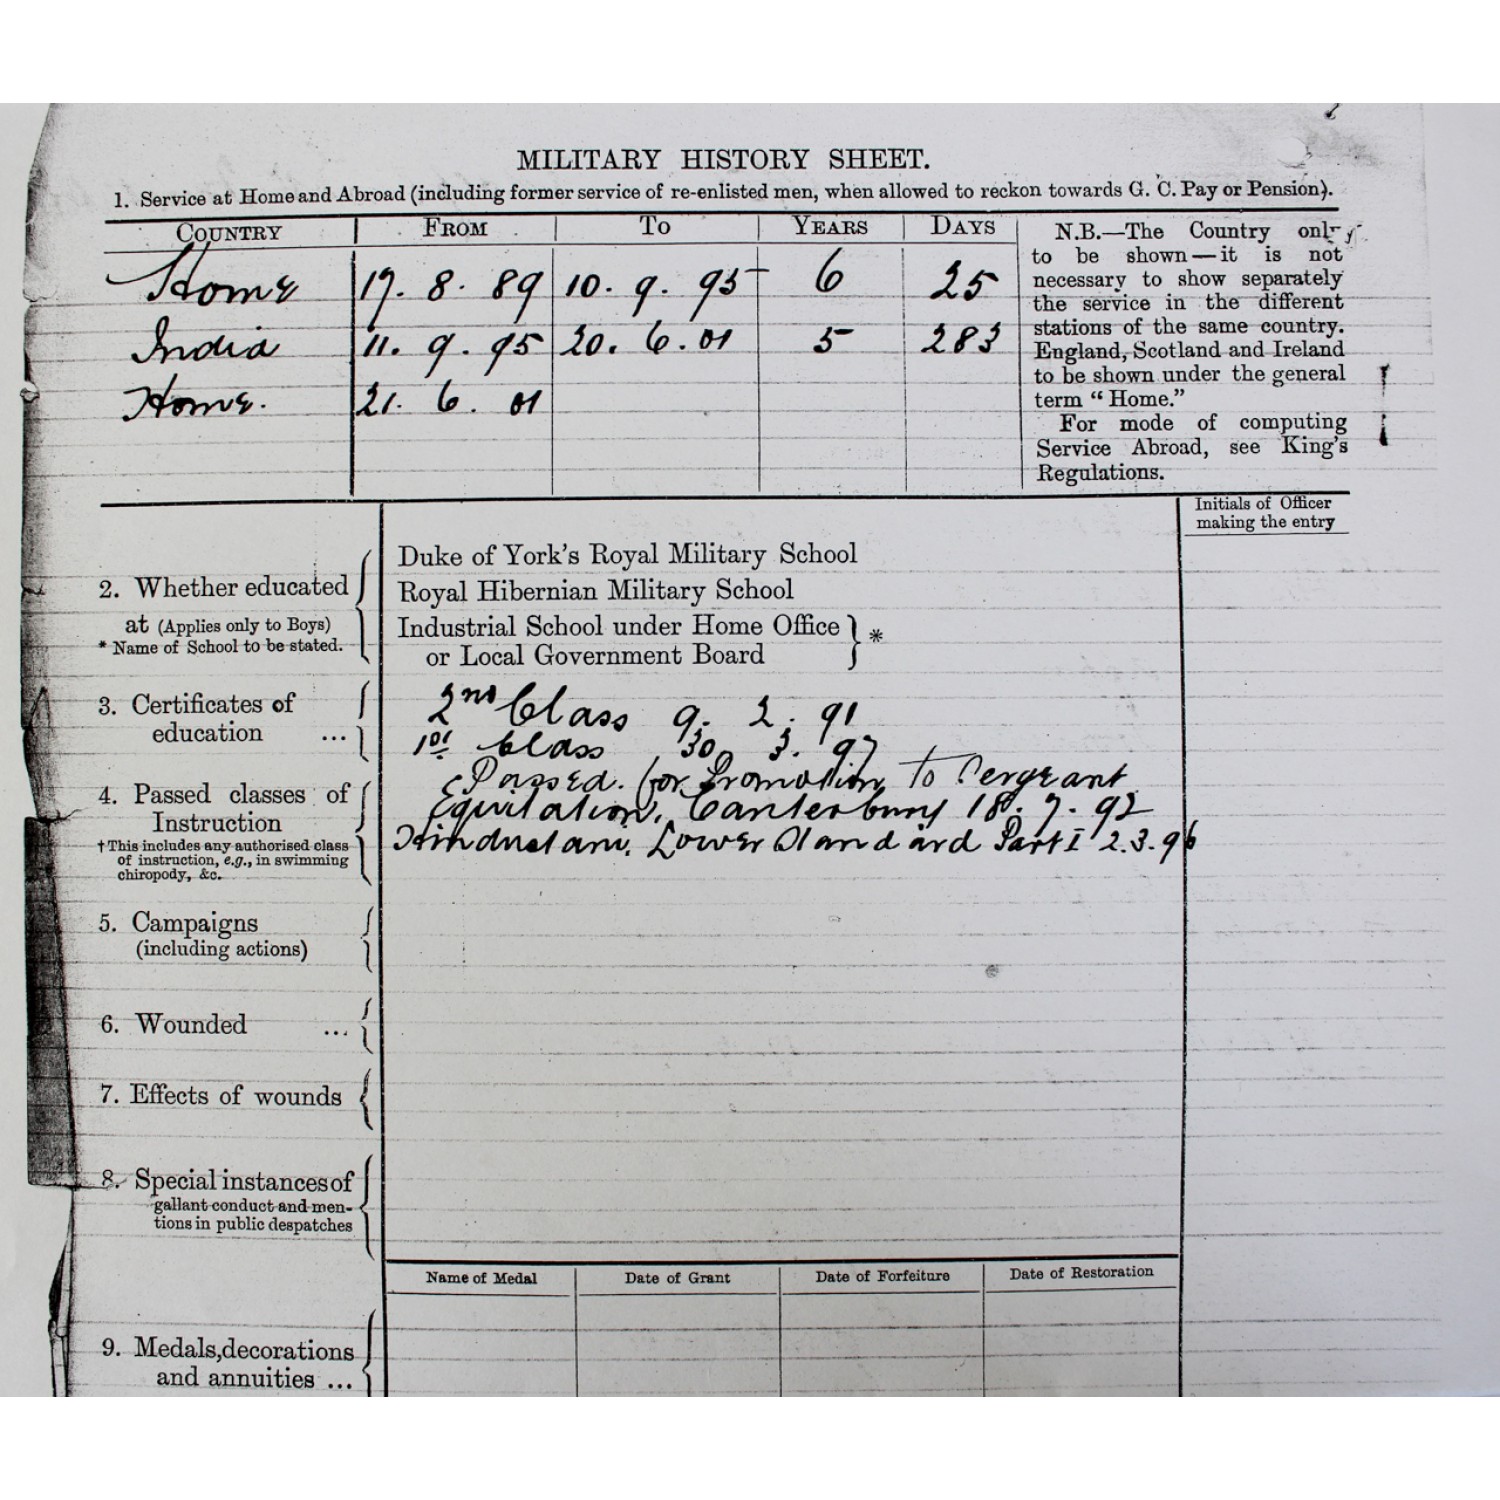 MILITARY HISTORY SHEET.
1. Service at Home and Abroad (including former service of re-enlisted men, when allowed to reckon towards G. C. Pay or Pension).
COUNTRY FROM TO YEARS DAYS
Home 17. 8. 89 10. 9. 95 6 25
India 11. 9. 95 20. 6. 01 5 283
Home. 21. 6. 01
N.B.—The Country only
to be shown—it is not
necessary to show separately
the service in the different
stations of the same country.
England, Scotland and Ireland
to be shown under the general
term "Home."
For mode of computing
Service Abroad, see King's
Regulations.
Initials of Officer
making the entry
2. Whether educated
at (Applies only to Boys)
* Name of School to be stated.
Duke of York's Royal Military School
Royal Hibernian Military School
Industrial School under Home Office
or Local Government Board } *
3. Certificates of
education ...
2nd Class 9. 2. 91
1st Class 30. 3. 97
4. Passed classes of
Instruction
† This includes any authorised class
of instruction, e.g., in swimming
chiropody, &c.
Passed. for Promotion to Sergeant
Equitation, Canterbury 18. 7. 92
Hindustani, Lower Standard Part I 2.3.96
5. Campaigns
(including actions)
6. Wounded ...
7. Effects of wounds
8. Special instances of
gallant conduct and men-
tions in public despatches
Name of Medal Date of Grant Date of Forfeiture Date of Restoration
9. Medals, decorations
and annuities ...